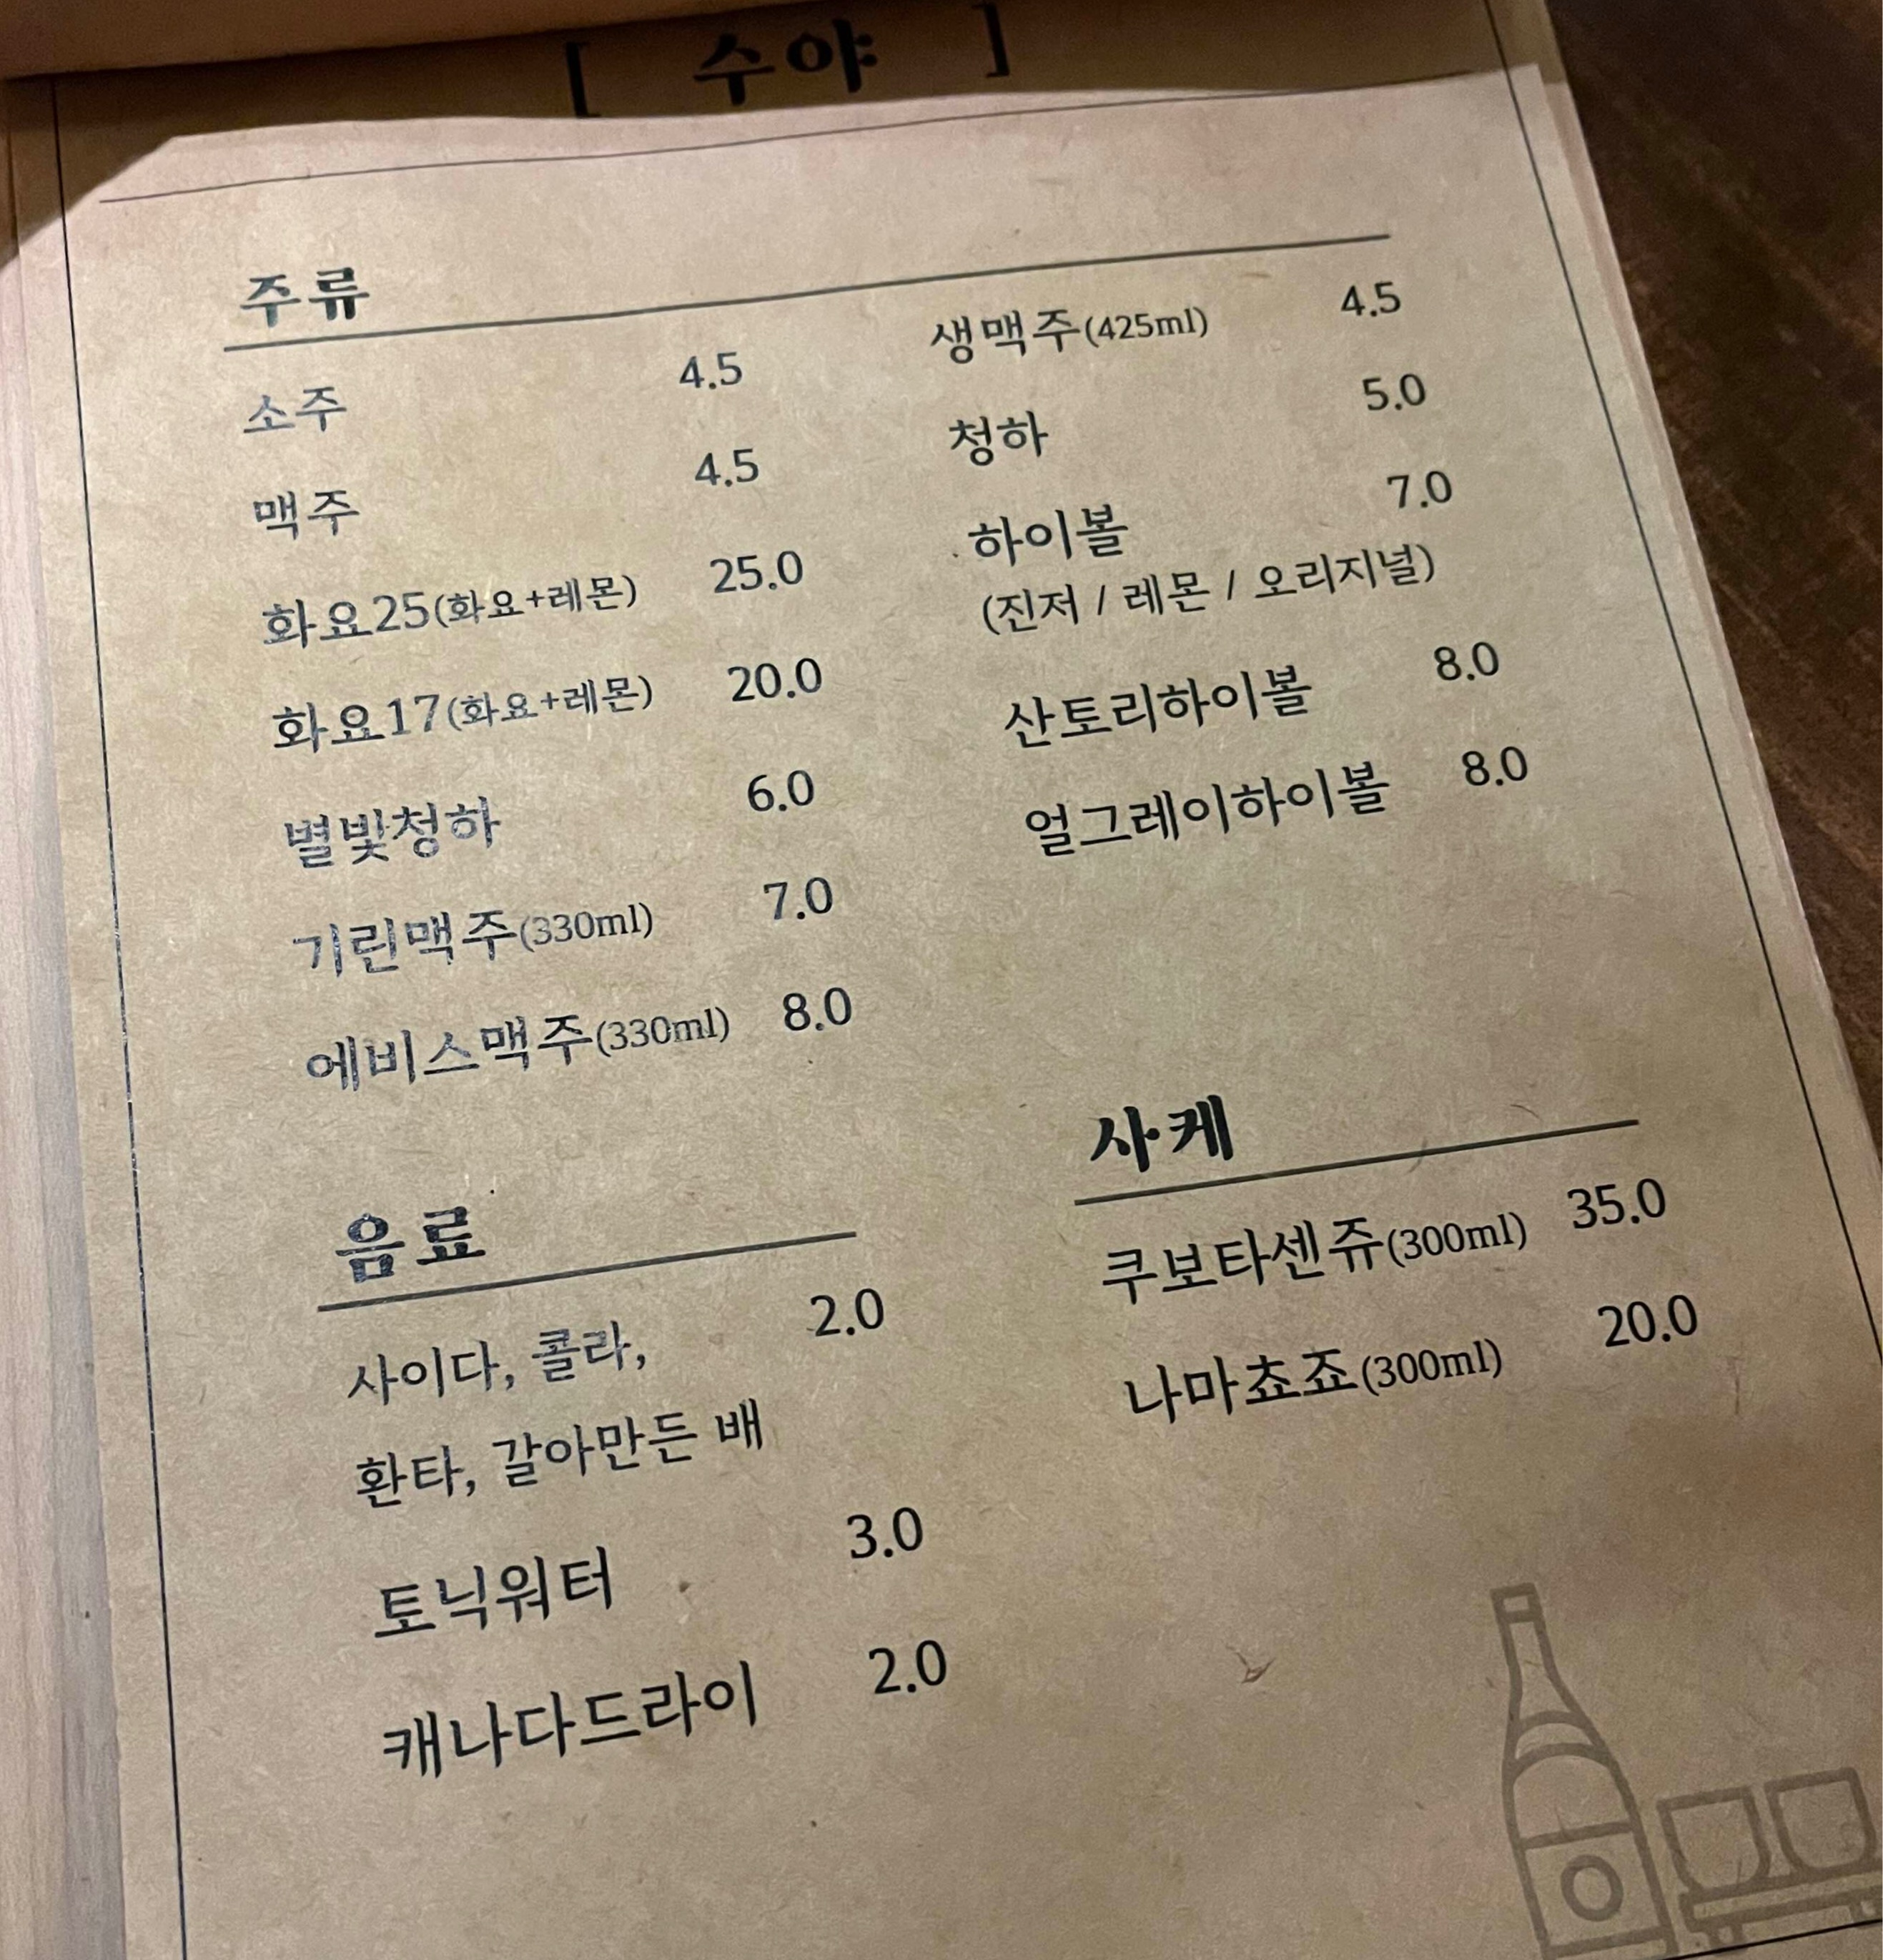 [ 수야 ]
주류
소주 4.5
맥주 4.5
화요25(화요+레몬) 25.0
화요17(화요+레몬) 20.0
별빛청하 6.0
기린맥주(330ml) 7.0
에비스맥주(330ml) 8.0
생맥주(425ml) 4.5
청하 5.0
하이볼 7.0
(진저 / 레몬 / 오리지널)
산토리하이볼 8.0
얼그레이하이볼 8.0
음료
사이다, 콜라, 2.0
환타, 갈아만든 배
토닉워터 3.0
캐나다드라이 2.0
사케
쿠보타센쥬(300ml) 35.0
나마쵸죠(300ml) 20.0